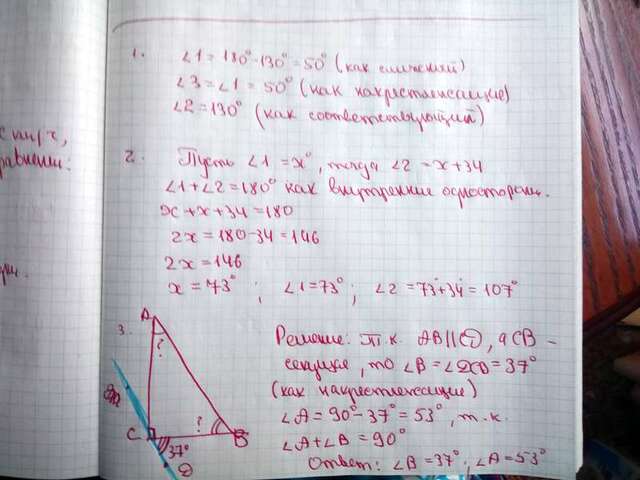 с пи
равнении:
1. ∠1=180°-130°=50° (как смежный)
∠3=∠1=50° (как накрестлежащие)
∠2=130° (как соответствующий)
2. Пусть ∠1=x°, тогда ∠2=x+34
∠1+∠2=180° как внутренние односторонн.
x+x+34=180
2x=180-34=146
2x=146
x=73°; ∠1=73°; ∠2=73°+34°=107°
3.
A
?
?
C
B
37°
D
Решение: т.к. AB||CD, а CB -
секущая, то ∠B=∠DCB=37°
(как накрестлежащие)
∠A=90°-37°=53°, т.к.
∠A+∠B=90°
Ответ: ∠B=37°; ∠A=53°